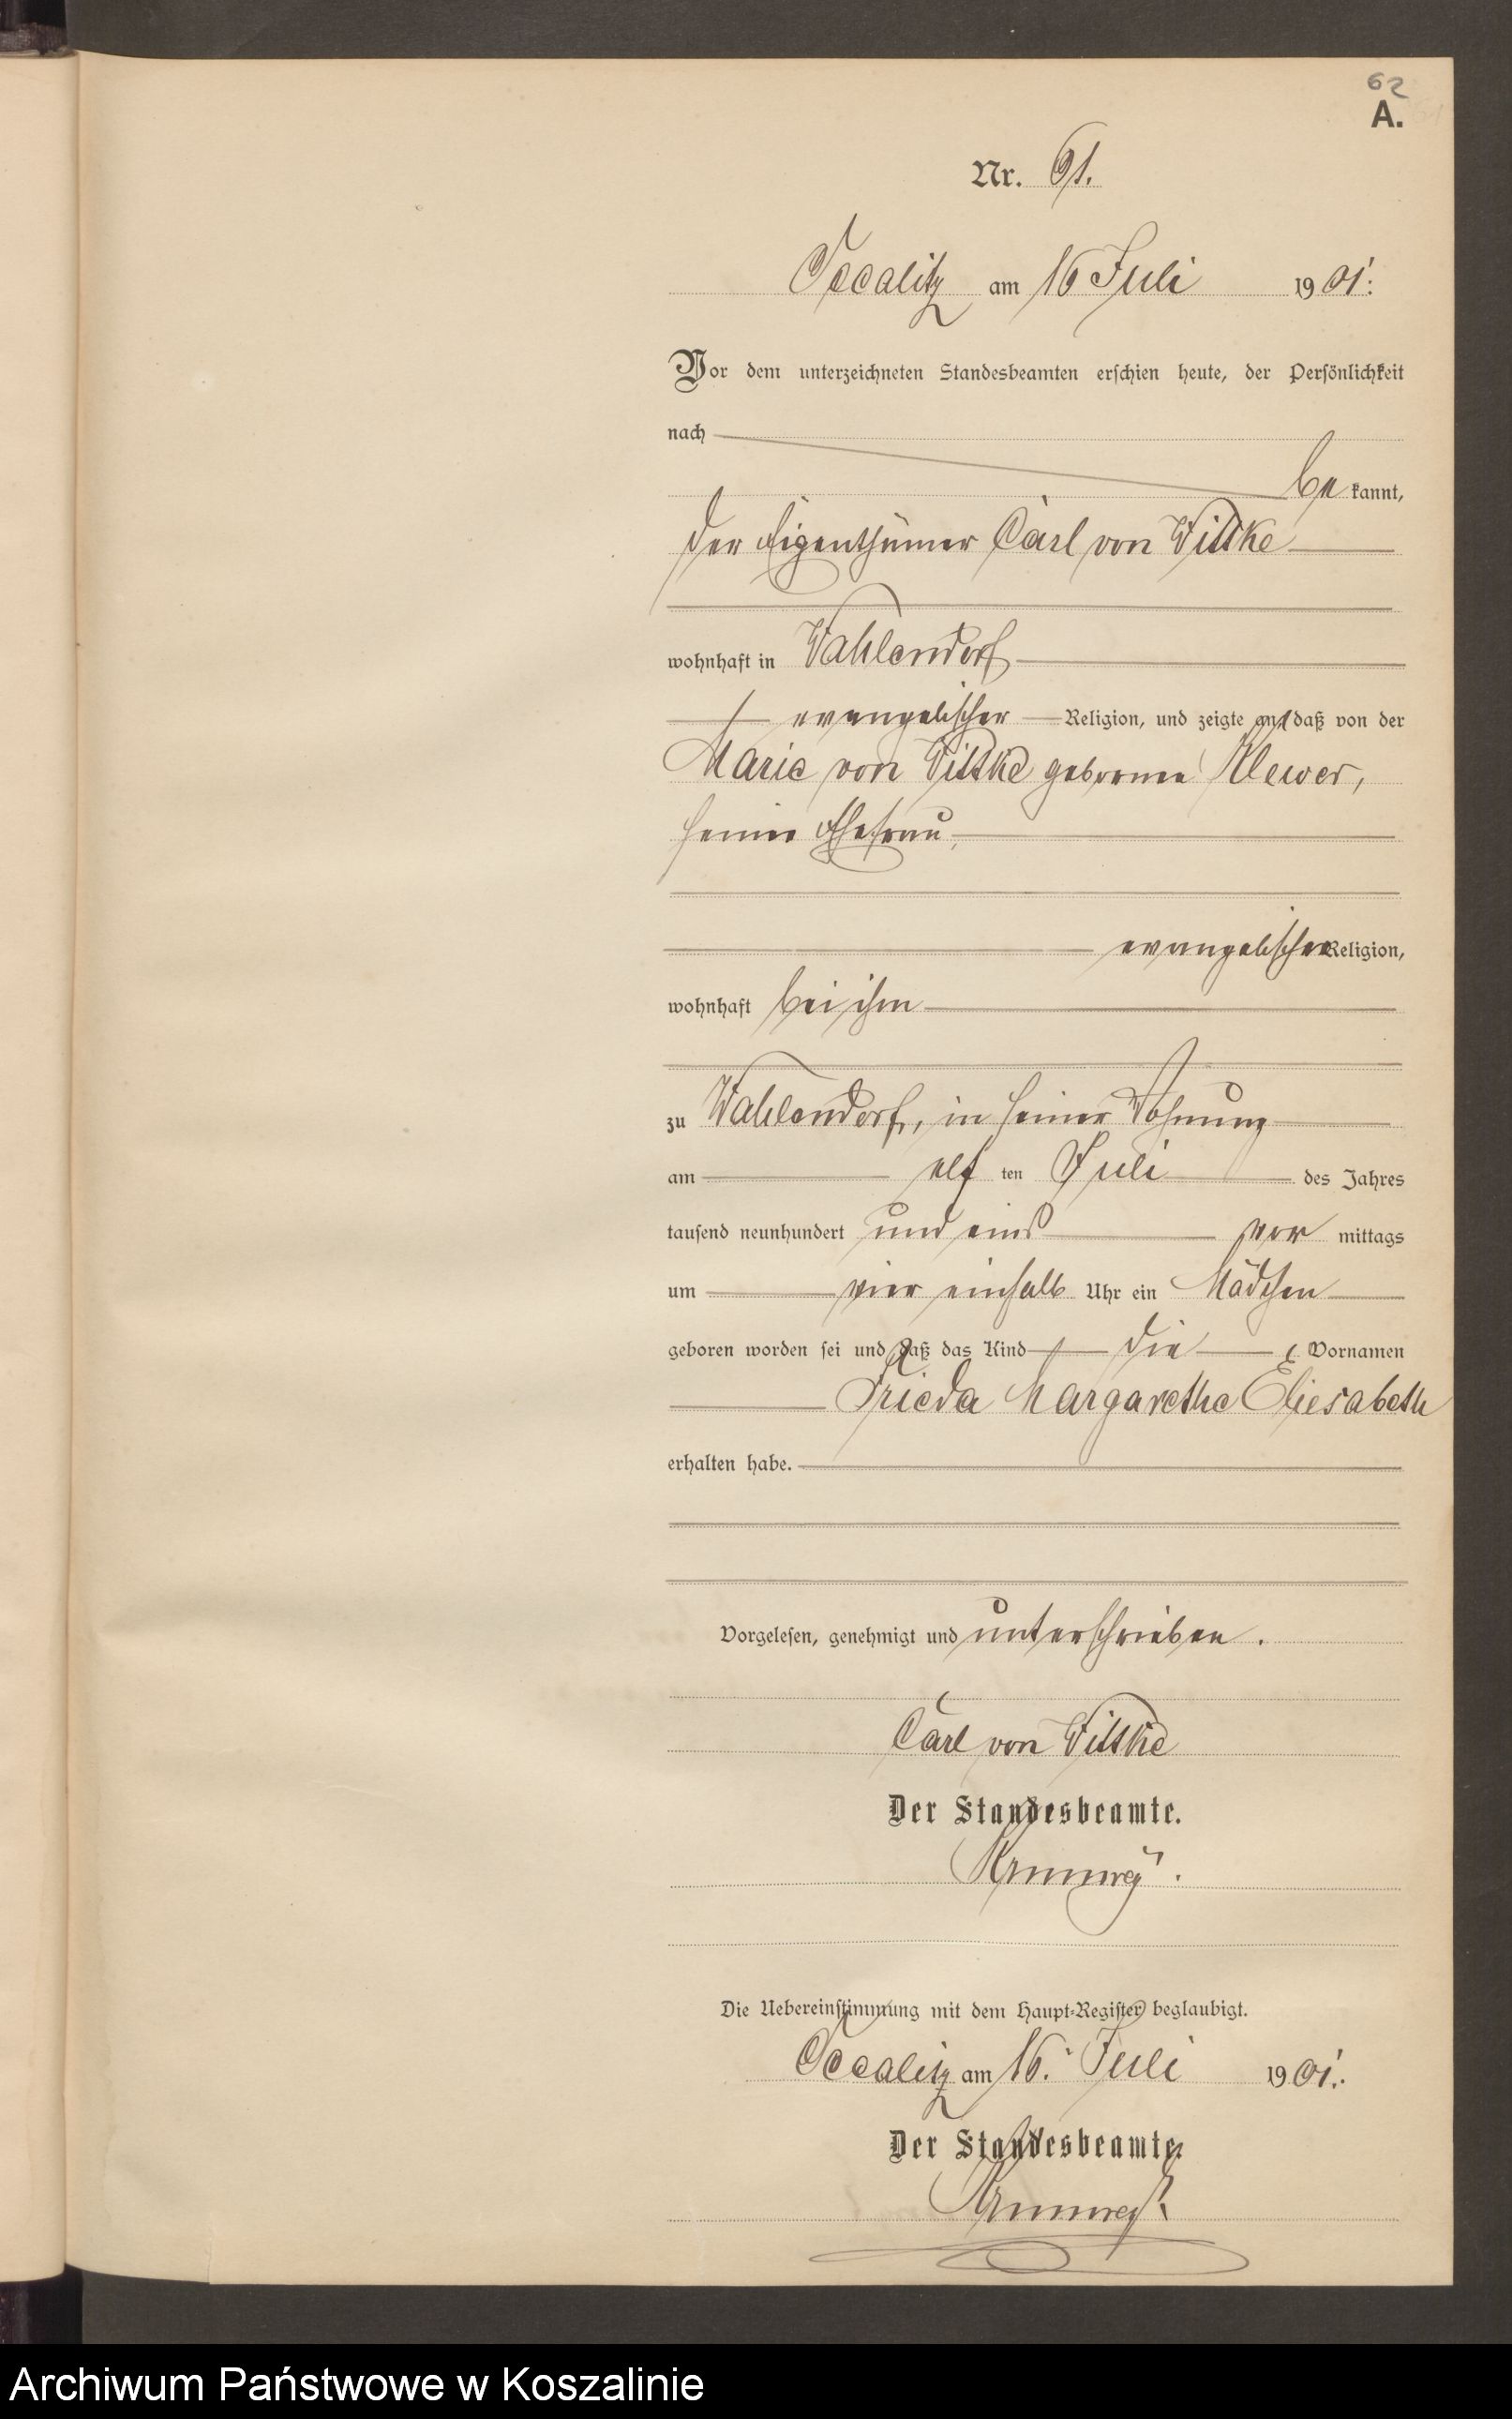 62
A.
Nr. 61.
Occalitz am 16 Juli 1901.
Vor dem unterzeichneten Standesbeamten erschien heute, der Persönlichkeit
nach
be kannt,
der Eigenthümer Carl von Wittke
wohnhaft in Wahlendorf
evangelischer Religion, und zeigte an, daß von der
Marie von Wittke geborene Klewer,
seiner Ehefrau,
evangelischer Religion,
wohnhaft bei ihm
zu Wahlendorf, in seiner Wohnung
am elf ten Juli des Jahres
tausend neunhundert und eins vor mittags
um vier einhalb Uhr ein Mädchen
geboren worden sei und daß das Kind die Vornamen
Frieda Margarethe Eliesabeth
erhalten habe.
Vorgelesen, genehmigt und unterschrieben.
Carl von Wittke
Der Standesbeamte.
Die Uebereinstimmung mit dem Haupt-Register beglaubigt.
Occalitz am 16. Juli 1901.
Der Standesbeamte.
Archiwum Państwowe w Koszalinie